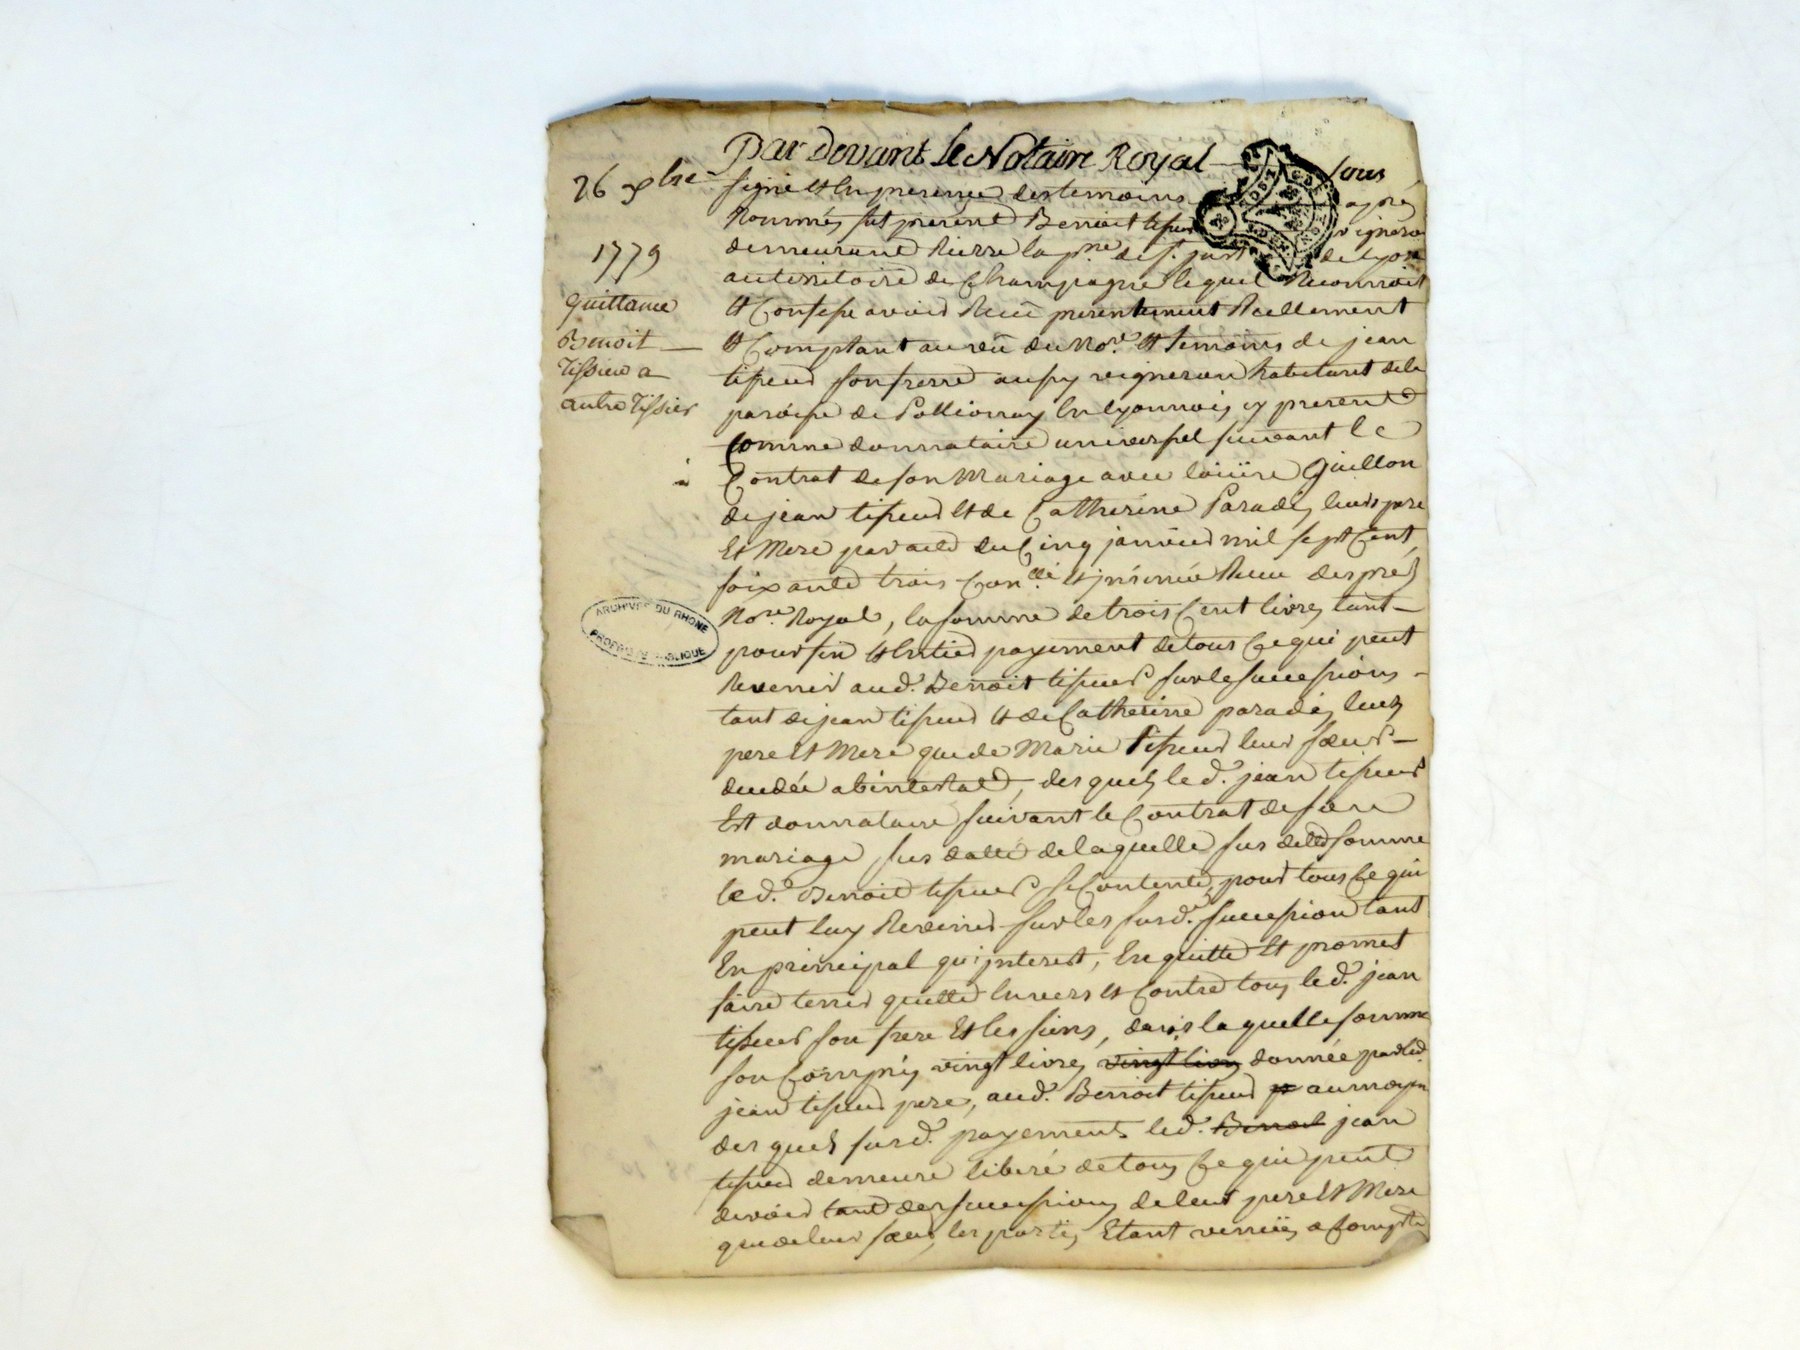 Par Devant Le Notaire Royal sous
signé et En presence des temoins apres
Nommés fut present Benoit tisseur vigneron
demeurant Rierre la p.ne de s.t just de Lyon
au territoire de Champagne lequel Reconnoit
et Confesse avoir Recû presentement Reellement
et Comptant au vû du No.re et temoins de jean
tisseur son frere aussy vigneron habitant de la
paroisse de Pollionnay En Lyonnois cy present
Comme donnataire universsel suivant le
Contrat de son Mariage avec Guillon
de jean tisseur et de Catherine Paradis leurs pere
Et Mere par acte du Cinq janvier mil sept Cent
soixante trois Con.llé et jnsinué Recu des pres
No.re Royal, la somme de trois Cent livres tant
pour fin et Entier payement de tous Ce qui peut
Revenir aud.t Benoit tisseur sur le successions
tant de jean tisseur et de Catherine paradis leurs
pere et Mere que de Marie tisseur leur sœur
decedée abintestat, des quels le d.t jean tisseur
Est donnataire suivant le Contrat de son
mariage sus datté de laquelle sus ditte somme
le d.t Benoit tisseur se Contente, pour tous Ce qui
peut luy Revenir sur les susd.t succession tant
En principal qu'jnterest, En quitte Et promet
faire tenir quitte Envers et Contre tous le d.t jean
tisseur son frere Et les siens, dans laquelle somme
son Compris vingt livres vingt livres donnée par led.t
jean tisseur pere, aud.t Benoit tisseur p au moyen
des quels susd.t payements led.t Benoit jean
tisseur demeure liberé de tous Ce qui peut
devoir tant des successions de leur pere Et Mere
que de leur sœur, les parties Etant venües a Compte
26 xbre
1779
quittance
Benoit
Tissieur a
autre Tissier
ARCHIVES DU RHONE
PROPRIÉTÉ PUBLIQUE